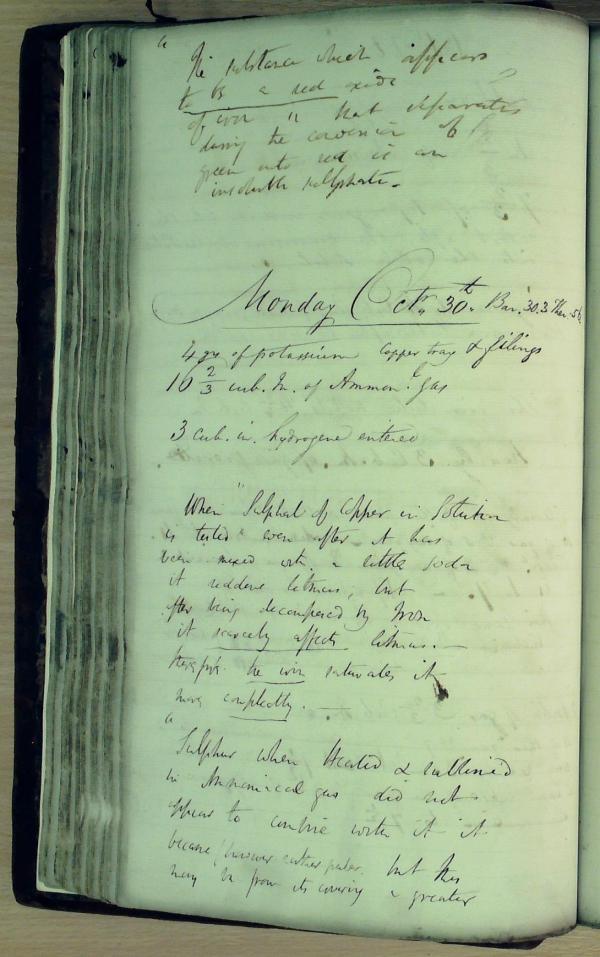 The substance which appears
to be a red oxide
of iron " that separates
during the conversion of
green into red is an
insoluble sulphate.
Monday Octr. 30th. Bar. 30.3 Ther. 56
4 grs of potassium copper tray & filings
10 2/3 cub. In. of Ammon.l gas
3 cub. in. hydrogene entered
When "Sulphat of Copper in Solution
is tested" even after it has
been mixed with a little soda
it reddens litmus, but
after being decomposed by Iron
it scarcely affects litmus. —
therefore the iron saturates it
more completely. —
Sulphur when Heated & sublimed
in Ammoniacal gas did not
appear to combine with it it
became however rather paler. but this
may be from its covering a greater